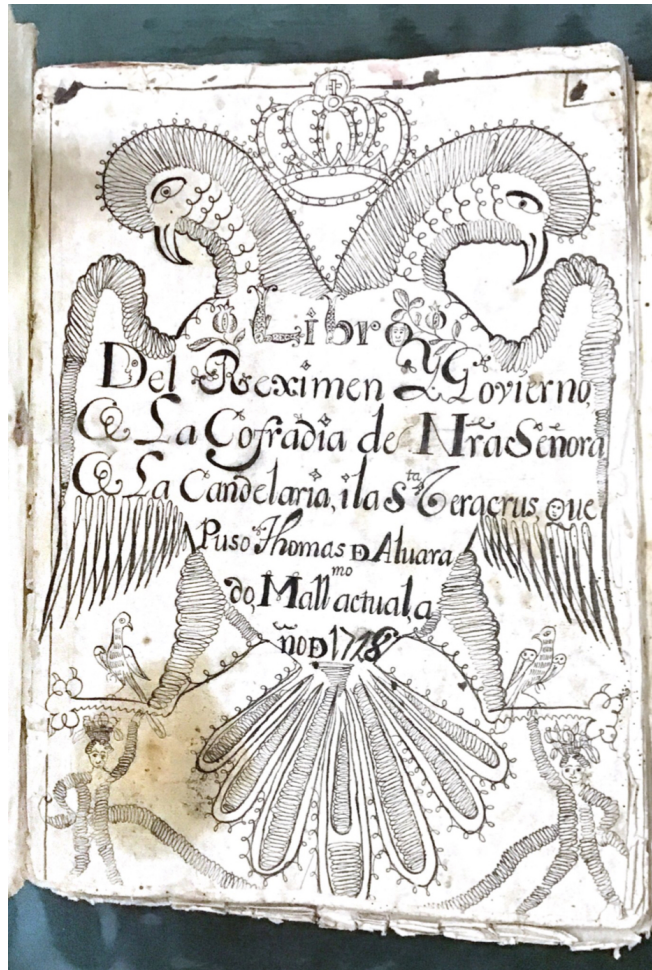 Libro
Del Reximen Y Govierno,
De La Cofradia de Nra Señora
De La Candelaria, i la Sta Veracrus, que
Puso Thomas D Aluara
do, Mallmo actual, a
ño D 1718